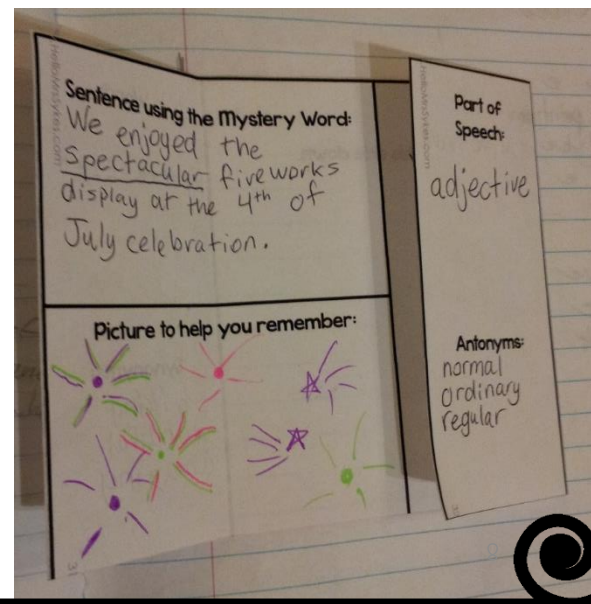 Sentence using the Mystery Word:
We enjoyed the
Spectacular fireworks
display at the 4th of
July celebration.
Picture to help you remember:
Part of
Speech:
adjective
Antonyms:
normal
ordinary
regular
31